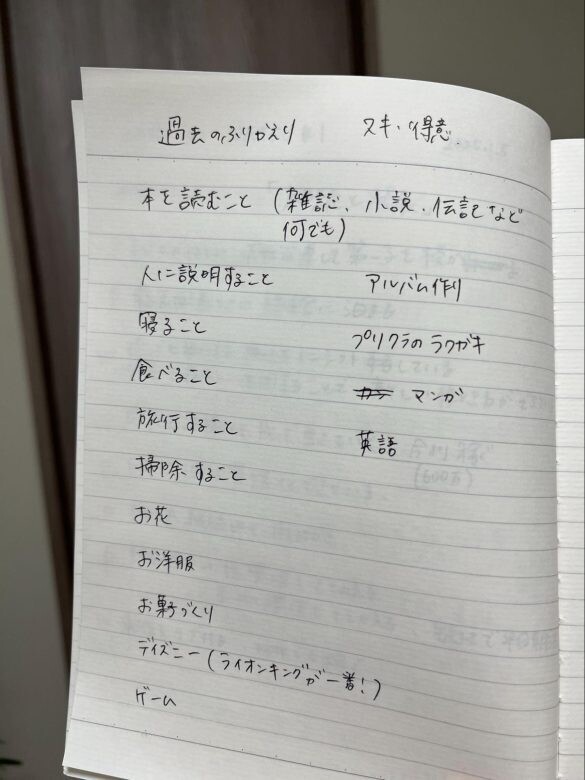 過去のふりかえり　スキ・得意
本を読むこと（雑誌、小説、伝記など
何でも）
人に説明すること　アルバム作り
寝ること　プリクラのラクガキ
食べること　マンガ
旅行すること　英語
掃除すること
お花
お洋服
お菓子づくり
ディズニー（ライオンキングが一番！）
ゲーム